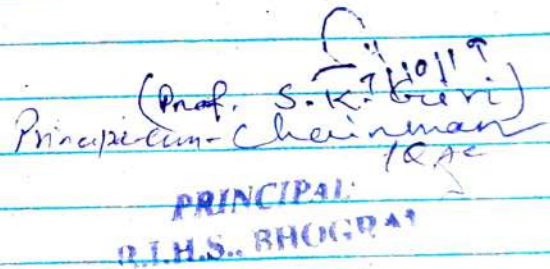 (Prof. S.K. Giri)
Principal-cum-Chairman
IQAC
PRINCIPAL
R.I.H.S., BHOGRAI